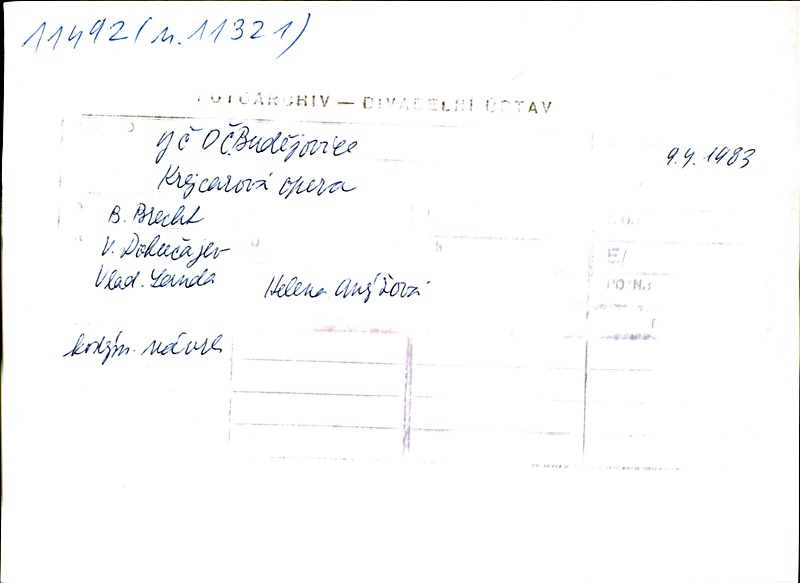 11492 (n. 11321)
FOTOARCHIV — DIVADELNÍ ÚSTAV
JČ D Č. Budějovice
9.4.1983
Krejcarová opera
B. Brecht
V. Dokučajev
Vlad. Landa
Helena Anýžová
kostým. návrh
E/